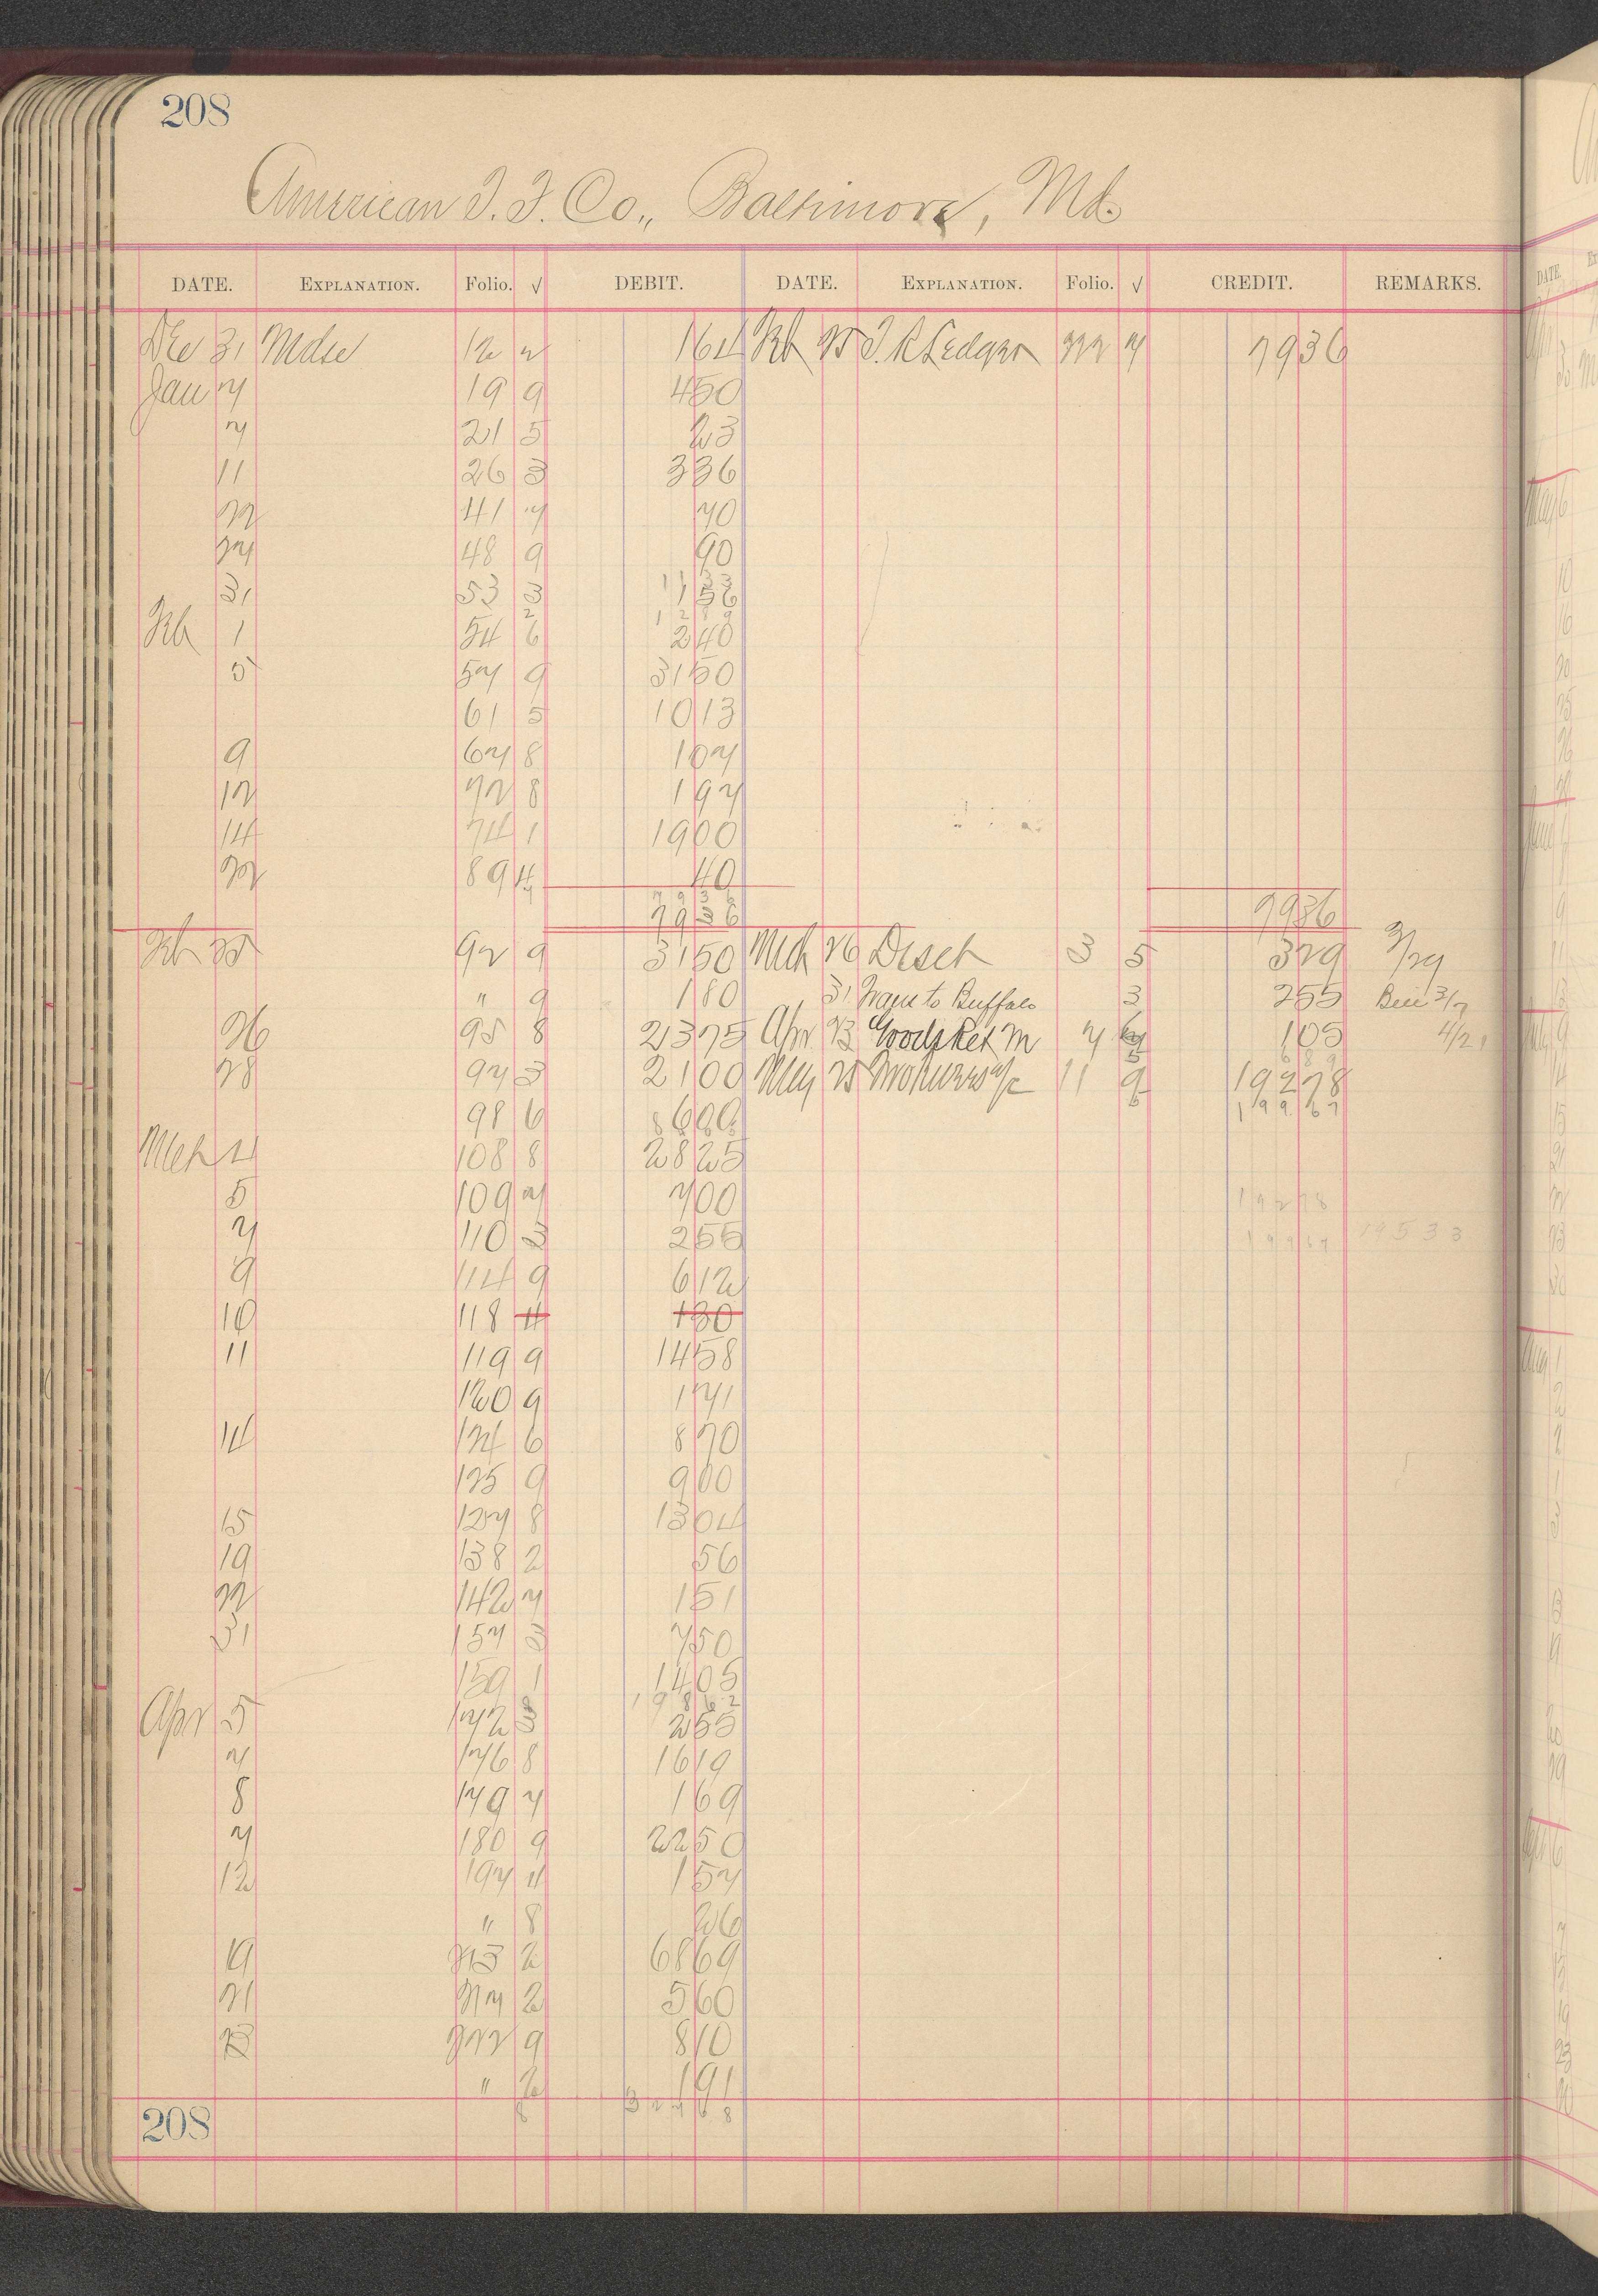 208
American I. F. Co., Baltimore, Md.
DATE. EXPLANATION. Folio. √ DEBIT. DATE. EXPLANATION. Folio. √ CREDIT. REMARKS.
Dec 31 Mdse 12 2 164 Feb 25 I. R Ledger 7 7936
Jan 7 19 9 450
7 21 5 23
11 26 3 336
22 41 7 70
27 48 9 90
1133
31 53 3 156
1289
Feb 1 54 6 240
5 57 9 3150
61 5 1013
9 67 8 107
12 72 8 197
14 74 1 1900
22 89 4 40
7936
7936 7936
Feb 25 92 9 3150 Mch 26 Desch 3 5 329 3/29
" 9 180 31 Trans to Buffalo 3 255 3/7
26 95 8 2375 Apr 23 Goods Ret M 7 105 4/21
689
28 97 3 2100 May 25 11 9 19278
98 6 600 19967
Mch 4 108 8 2825
5 109 7 700 19278
7 110 3 255 19967 19533
9 114 9 612
10 118 4 130
11 119 9 1458
120 9 171
14 124 6 870
125 9 900
15 127 8 1304
19 138 2 56
22 142 7 151
31 157 3 750
159 1 1405
19862
Apr 5 172 3 255
7 176 8 1619
8 179 7 169
7 180 9 2250
12 197 4 157
" 8 26
19 213 2 6869
21 217 2 560
23 222 9 810
" 2 191
8 32768
208